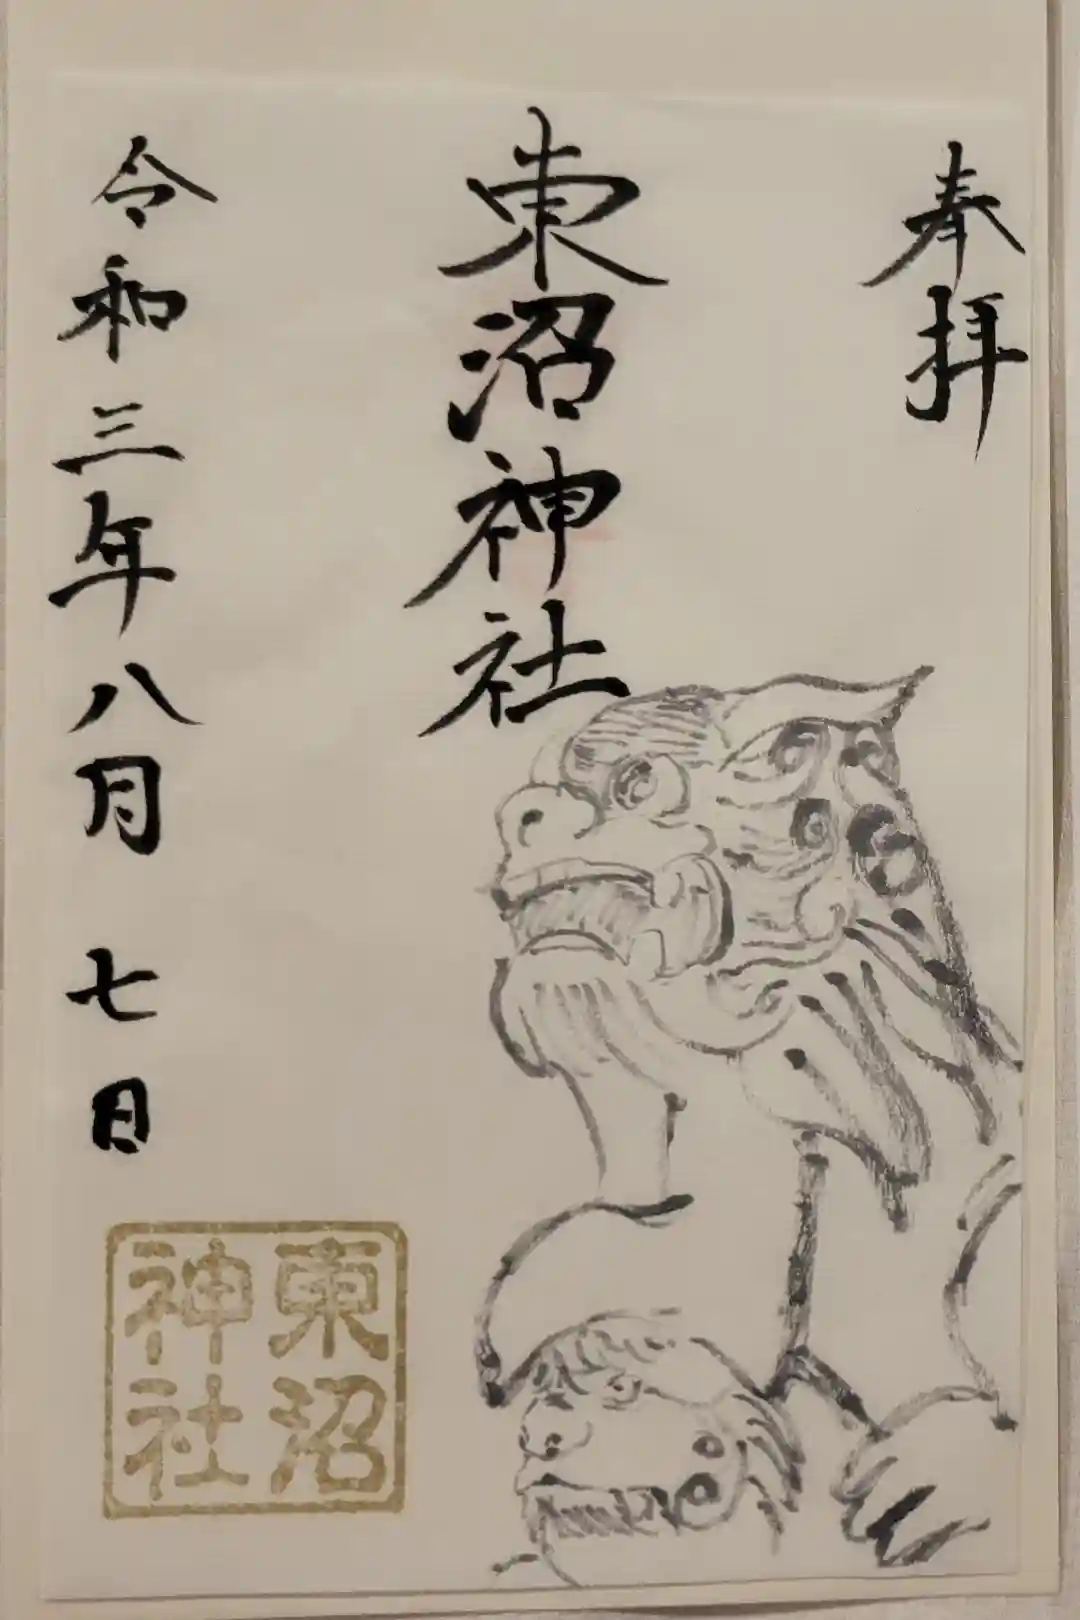 奉拝
東沼神社
令和三年八月七日
東沼
神社